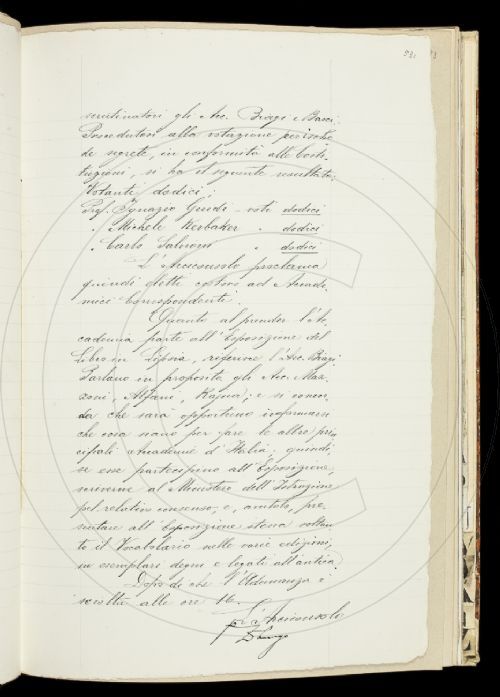 53.
scrutinatori gli Acc. Biagi e Bacci.
Proceduto si alla votazione per ische
de segrete, in conformità alle Costi-
tuzioni, si ha il seguente resultato:
Votanti dodici;
Prof. Ignazio Guidi - voti dodici
" Michele Kerbaker " dodici
" Carlo Salvioni " dodici
L'Arciconsolo proclama
quindi eletti costoro ad Accade-
mici Corrispondenti.
Quanto al prender l'Ac-
cademia parte all'Esposizione del
Libro in Lipsia, riferisce l'Acc. Biagi.
Parlano in proposito gli Acc. Maz-
zoni, Alfani, Rajna; e si concor-
da che sarà opportuno informarsi
che cosa siano per fare le altre prin
cipali Accademie d'Italia; quindi,
se esse partecipino all'Esposizione,
scriverne al Ministero dell'Istruzione
pel relativo consenso; e, avutolo, pre-
sentare all'Esposizione stessa soltan-
to il Vocabolario nelle varie edizioni,
in esemplari degni e legati all'antica.
Dopo di che l'Adunanza è
sciolta alle ore 16.
L'Arciconsolo